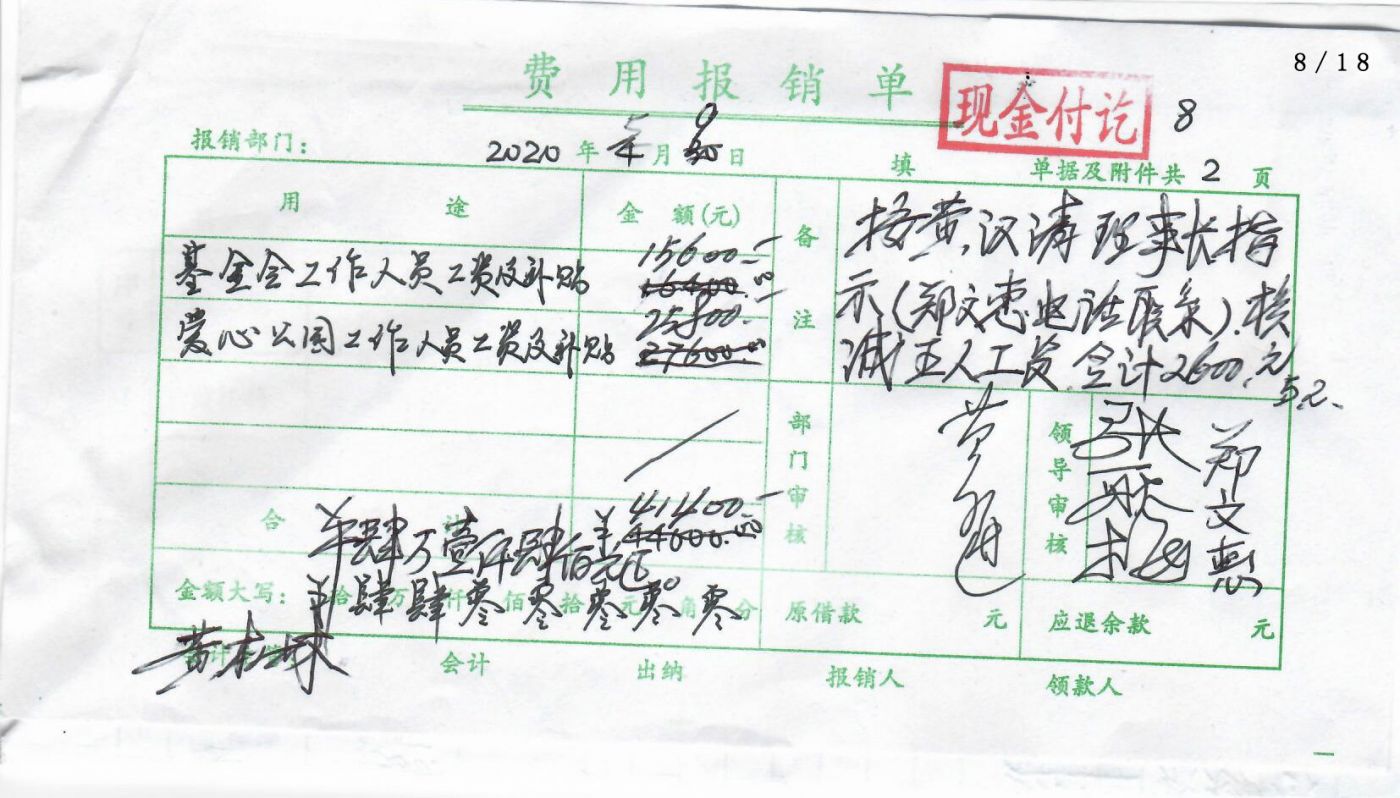 8/18
费用报销单
现金付讫
8
报销部门：
2020 年 5 月 9 日
填
单据及附件共 2 页
用途
金额(元)
备注
按黄汉清理事长指
示(郑文惠电话联系).核
减五人工资,合计2600.元
5.2.
基金会工作人员工资及补贴
15600.-
16400.00
爱心公园工作人员工资及补贴
25800.-
27600.00
部门审核
黄
领导审核
郑文惠
合计
¥41400.-
44000.00
肆万壹仟肆佰元正
金额大写：拾肆万肆仟零佰零拾零元零角零分
原借款 元
应退余款 元
会计
出纳
报销人
领款人